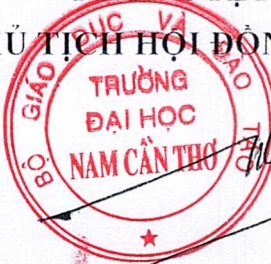 Ủ TỊCH HỘI ĐỒN
BỘ GIÁO DỤC VÀ ĐÀO TẠO
TRƯỜNG
ĐẠI HỌC
NAM CẦN THƠ